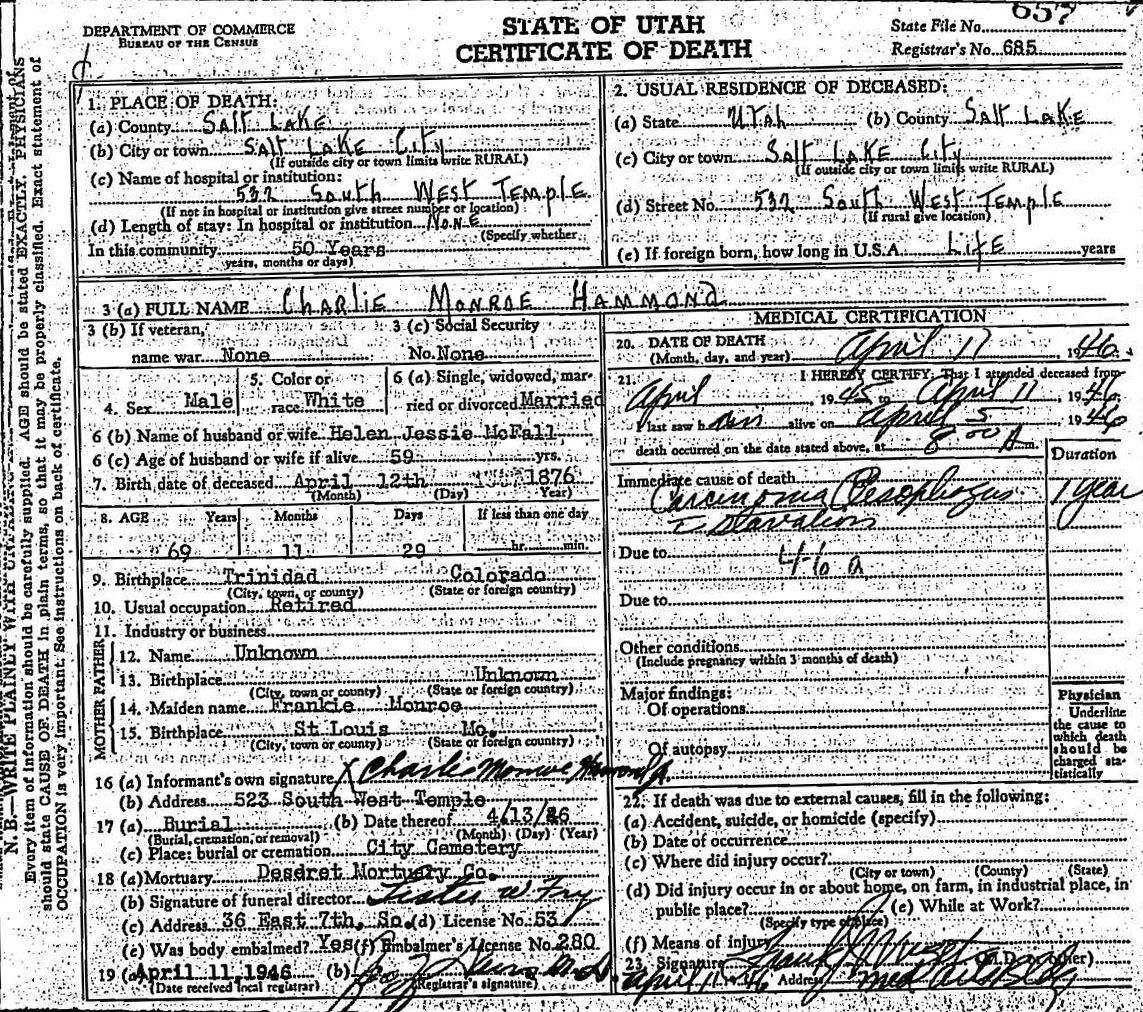 DEPARTMENT OF COMMERCE
BUREAU OF THE CENSUS
STATE OF UTAH
CERTIFICATE OF DEATH
State File No. 657
Registrar's No. 685
N. B.—WRITE PLAINLY WITH UNFADING
Every item of information should be carefully supplied. AGE should be stated EXACTLY. PHYSICIANS
should state CAUSE OF DEATH in plain terms, so that it may be properly classified. Exact statement of
OCCUPATION is very important. See instructions on back of certificate.
1. PLACE OF DEATH:
(a) County Salt Lake
(b) City or town Salt Lake City
(If outside city or town limits write RURAL)
(c) Name of hospital or institution:
532 South West Temple
(If not in hospital or institution give street number or location)
(d) Length of stay: In hospital or institution None
(Specify whether
In this community 50 Years
years, months or days)
2. USUAL RESIDENCE OF DECEASED:
(a) State Utah (b) County Salt Lake
(c) City or town Salt Lake City
(If outside city or town limits write RURAL)
(d) Street No. 532 South West Temple
(If rural give location)
(e) If foreign born, how long in U.S.A. Life years
3 (a) FULL NAME Charlie Monroe Hammond
3 (b) If veteran, 3 (c) Social Security
name war None No. None
4. Sex Male 5. Color or race White 6 (a) Single, widowed, married or divorced Married
6 (b) Name of husband or wife Helen Jessie McFall
6 (c) Age of husband or wife if alive 59 yrs.
7. Birth date of deceased April 12th 1876
(Month) (Day) Year)
8. AGE Years Months Days If less than one day
69 11 29 hr. min.
9. Birthplace Trinidad Colorado
(City, town, or county) (State or foreign country)
10. Usual occupation Retired
11. Industry or business
FATHER
12. Name Unknown
13. Birthplace Unknown
(City, town or county) (State or foreign country)
MOTHER
14. Maiden name Frankie Monroe
15. Birthplace St Louis Mo.
(City, town or county) (State or foreign country)
16 (a) Informant's own signature X Charlie Monroe Hammond Jr.
(b) Address 523 South West Temple
17 (a) Burial (b) Date thereof 4/13/46
(Burial, cremation, or removal) (Month) (Day) (Year)
(c) Place: burial or cremation City Cemetery
18 (a) Mortuary Deseret Mortuary Co.
(b) Signature of funeral director
(c) Address 36 East 7th, So. (d) License No. 53
(e) Was body embalmed? Yes (f) Embalmer's License No. 280
19 (a) April 11, 1946 (b)
(Date received local registrar) Registrar's signature)
MEDICAL CERTIFICATION
20. DATE OF DEATH
(Month, day, and year) April 11 1946
21. I HEREBY CERTIFY: That I attended deceased from
April 1945 to April 11, 1946
last saw him alive on April 5 1946
death occurred on the date stated above, at 8:00 A m
Duration
Immediate cause of death
Carcinoma Oesophogus 1 year
c Starvation
Due to 46 a
Due to
Other conditions
(Include pregnancy within 3 months of death)
Major findings:
Of operations
Of autopsy
Physician
Underline
the cause to
which death
should be
charged sta-
tistically
22. If death was due to external causes, fill in the following:
(a) Accident, suicide, or homicide (specify)
(b) Date of occurrence
(c) Where did injury occur?
(City or town) (County) (State)
(d) Did injury occur in or about home, on farm, in industrial place, in
public place? (e) While at Work?
(Specify type of place)
(f) Means of injury
23. Signature Frank (M.D. or other)
April 11 1946 Address Med Arts Bldg